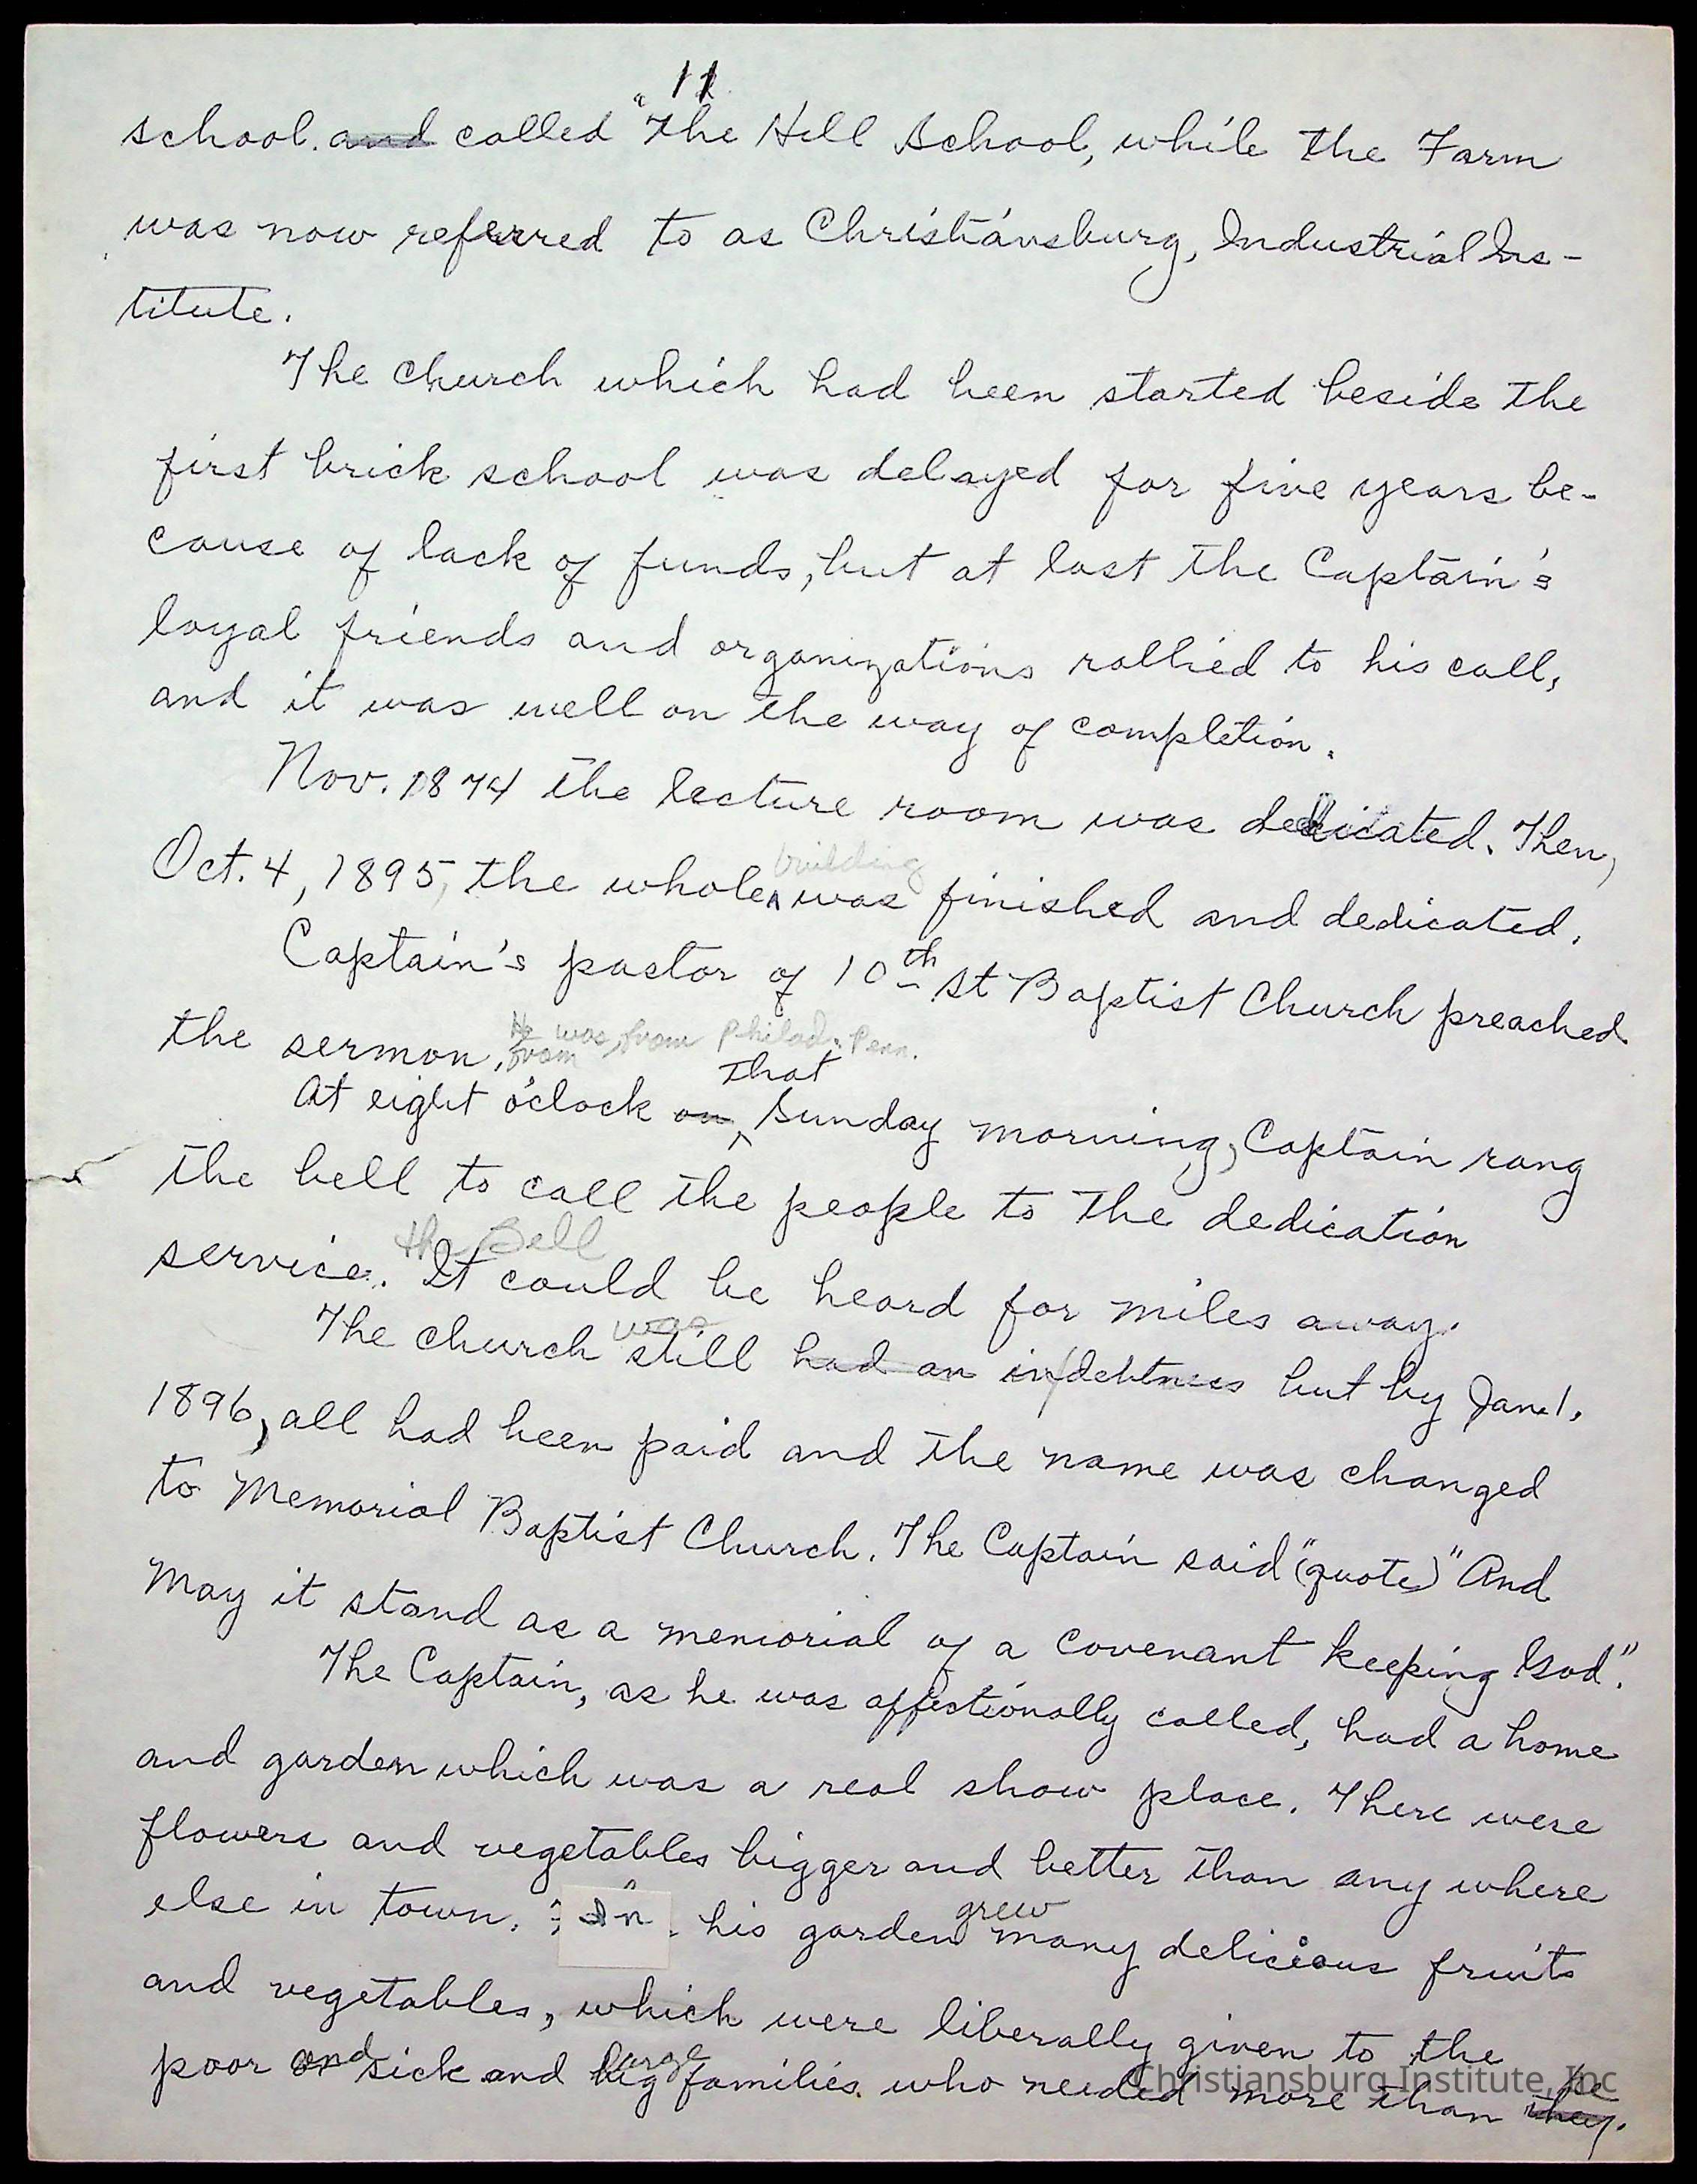 11
school. and called "The Hill School, while the Farm
was now referred to as Christiansburg, Industrial Ins-
titute.
The church which had been started beside the
first brick school was delayed for five years be-
cause of lack of funds, but at last the Captain's
loyal friends and organizations rallied to his call,
and it was well on the way of completion.
Nov. 1874 the lecture room was dedicated. Then,
building
Oct. 4, 1895, the whole was finished and dedicated.
Captain's pastor of 10th St Baptist Church preached
He was from Philad. Penn.
the sermon, from
that
At eight o'clock on Sunday morning, Captain rang
the bell to call the people to the dedication
the Bell
service. It could be heard for miles away.
was
The church still had an indebtness but by Jan. 1,
1896, all had been paid and the name was changed
to Memorial Baptist Church. The Captain said "(quote)" And
May it stand as a memorial of a covenant keeping God".
The Captain, as he was affectionally called, had a home
and garden which was a real show place. There were
flowers and vegetables bigger and better than any where
grew
else in town. In his garden many delicious fruits
and vegetables, which were liberally given to the
large
poor and sick and big families who needed more than they.
he
Christiansburg Institute, Inc